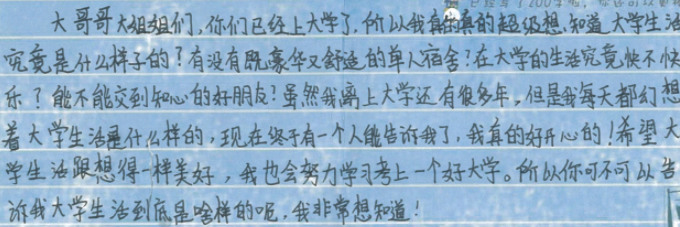 大哥哥大姐姐们，你们已经上大学了，所以我真的真的超级想知道大学生活
究竟是什么样子的？有没有既豪华又舒适的单人宿舍？在大学的生活究竟快不快
乐？能不能交到知心的好朋友？虽然我离上大学还有很多年，但是我每天都幻想
着大学生活是什么样的，现在终于有一个人能告诉我了，我真的好开心的！希望大
学生活跟想得一样美好，我也会努力学习考上一个好大学。所以你可不可以告
诉我大学生活到底是啥样的呢，我非常想知道！